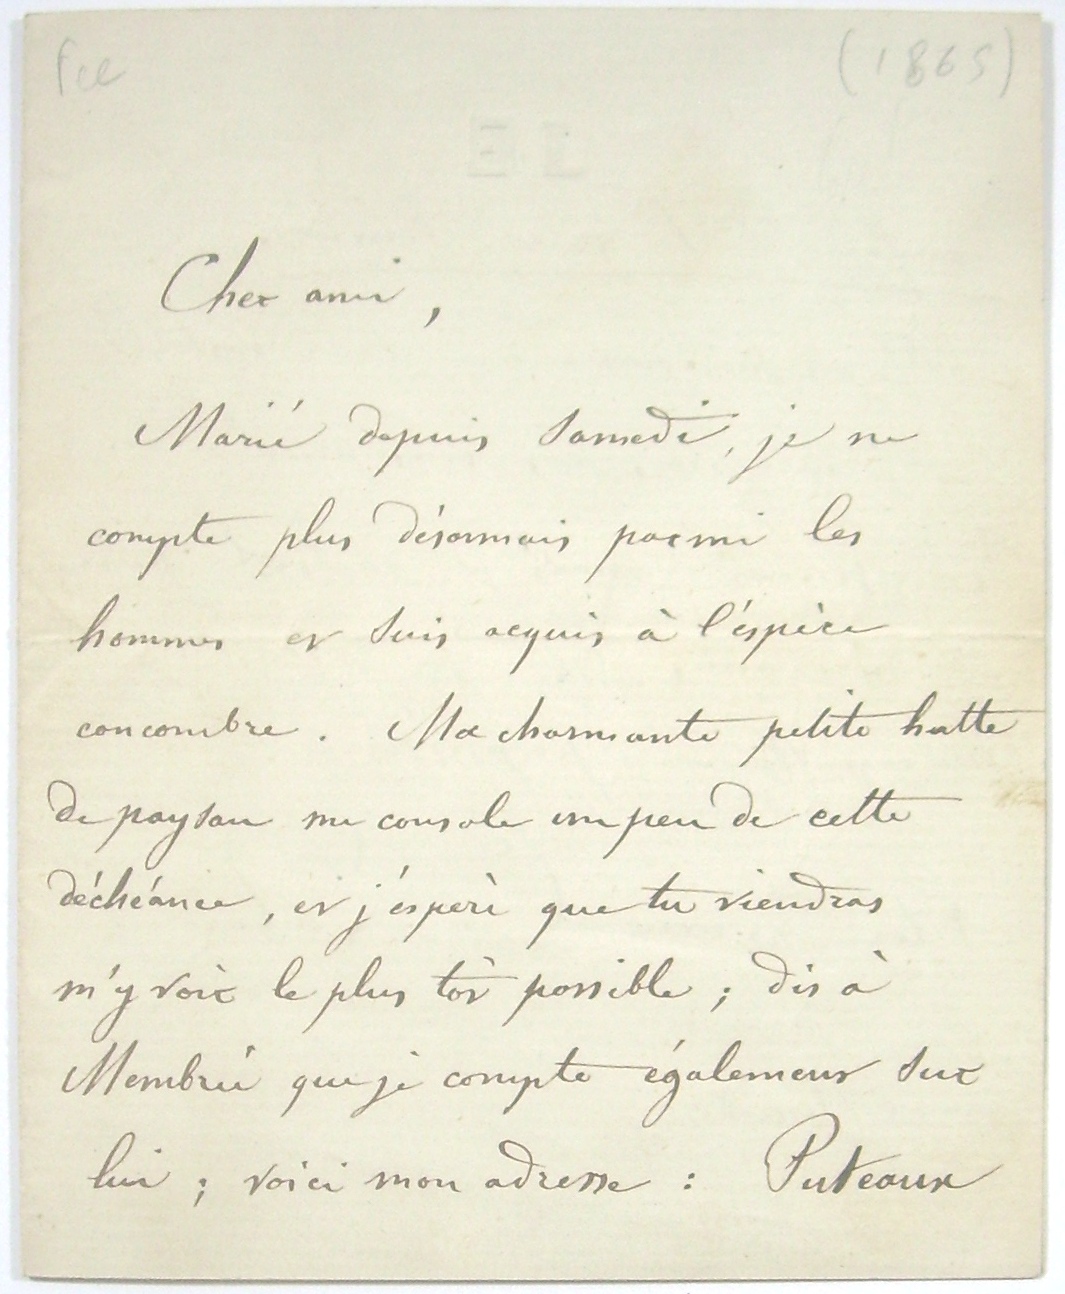 (1865)
Cher ami,
Marié depuis Samedi, je ne
compte plus désormais parmi les
hommes et suis acquis à l'éspèce
concombre. Ma charmante petite hutte
de paysan me console un peu de cette
déchéance, et j'éspère que tu viendras
m'y voir le plus tôt possible ; dis à
Membrée que je compte également sur
lui ; voici mon adresse : Puteaux